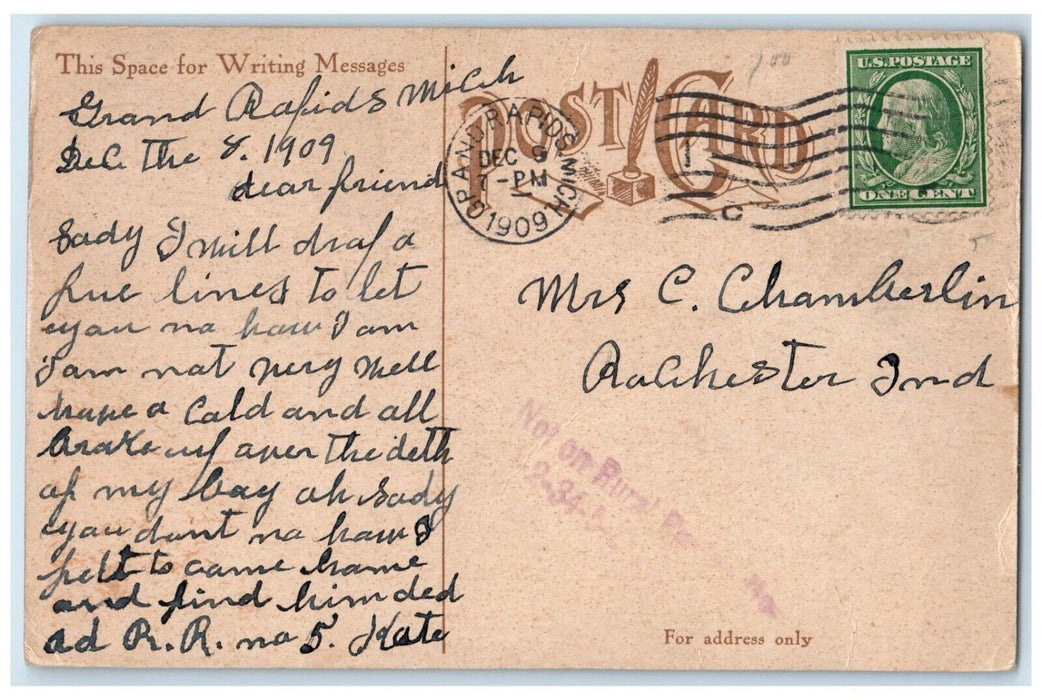 This Space for Writing Messages
Grand Rapids Mich
Dec the 8. 1909
dear friend
Sady I will drop a
fue lines to let
you no how I am
I am not very well
have a cold and all
broke up over the deth
of my boy oh Sady
you dont no how I
felt to come home
and find him ded
ad R.R. no 5. Kate
POST CARD
GRAND RAPIDS MICH
DEC 9
7-PM
1909
C
U.S. POSTAGE
ONE CENT
Mrs C. Chamberlin
Rochester Ind
Not on Rural
2-34-5
No
For address only